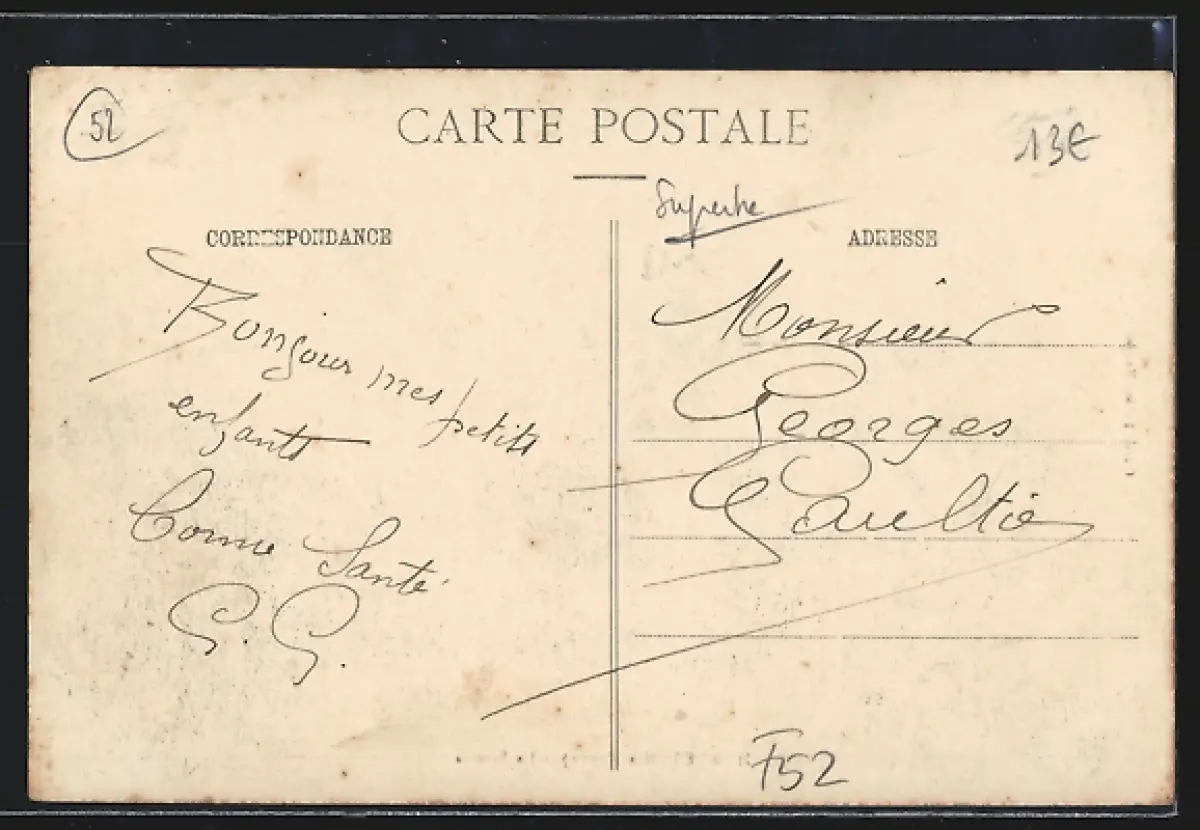 52
CARTE POSTALE
13€
Superbe
CORRESPONDANCE
ADRESSE
Bonjour mes petits
enfants
Bonne Santé
G. G.
Monsieur
Georges
Gaultier
F52